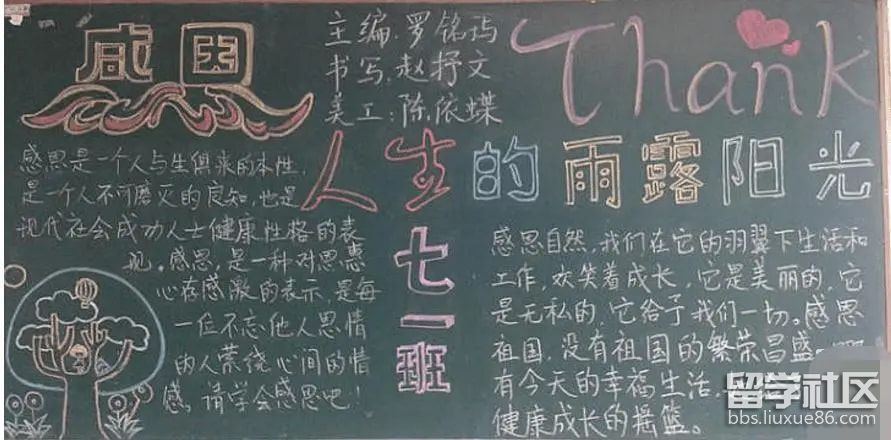 感恩
主编:罗铭玙
书写:赵抒文
美工:陈依蝶
Thank
人生的雨露阳光
七一班
感恩是一个人与生俱来的本性,
是一个人不可磨灭的良知,也是
现代社会成功人士健康性格的表
现。感恩,是一种对恩惠
心存感激的表示,是每
一位不忘他人恩情
的人萦绕心间的情
感。请学会感恩吧!
感恩自然,我们在它的羽翼下生活和
工作,欢笑着成长,它是美丽的,它
是无私的,它给予我们一切。感恩
祖国,没有祖国的繁荣昌盛
有今天的幸福生活
健康成长的摇篮。
留学社区
bbs.liuxue86.com